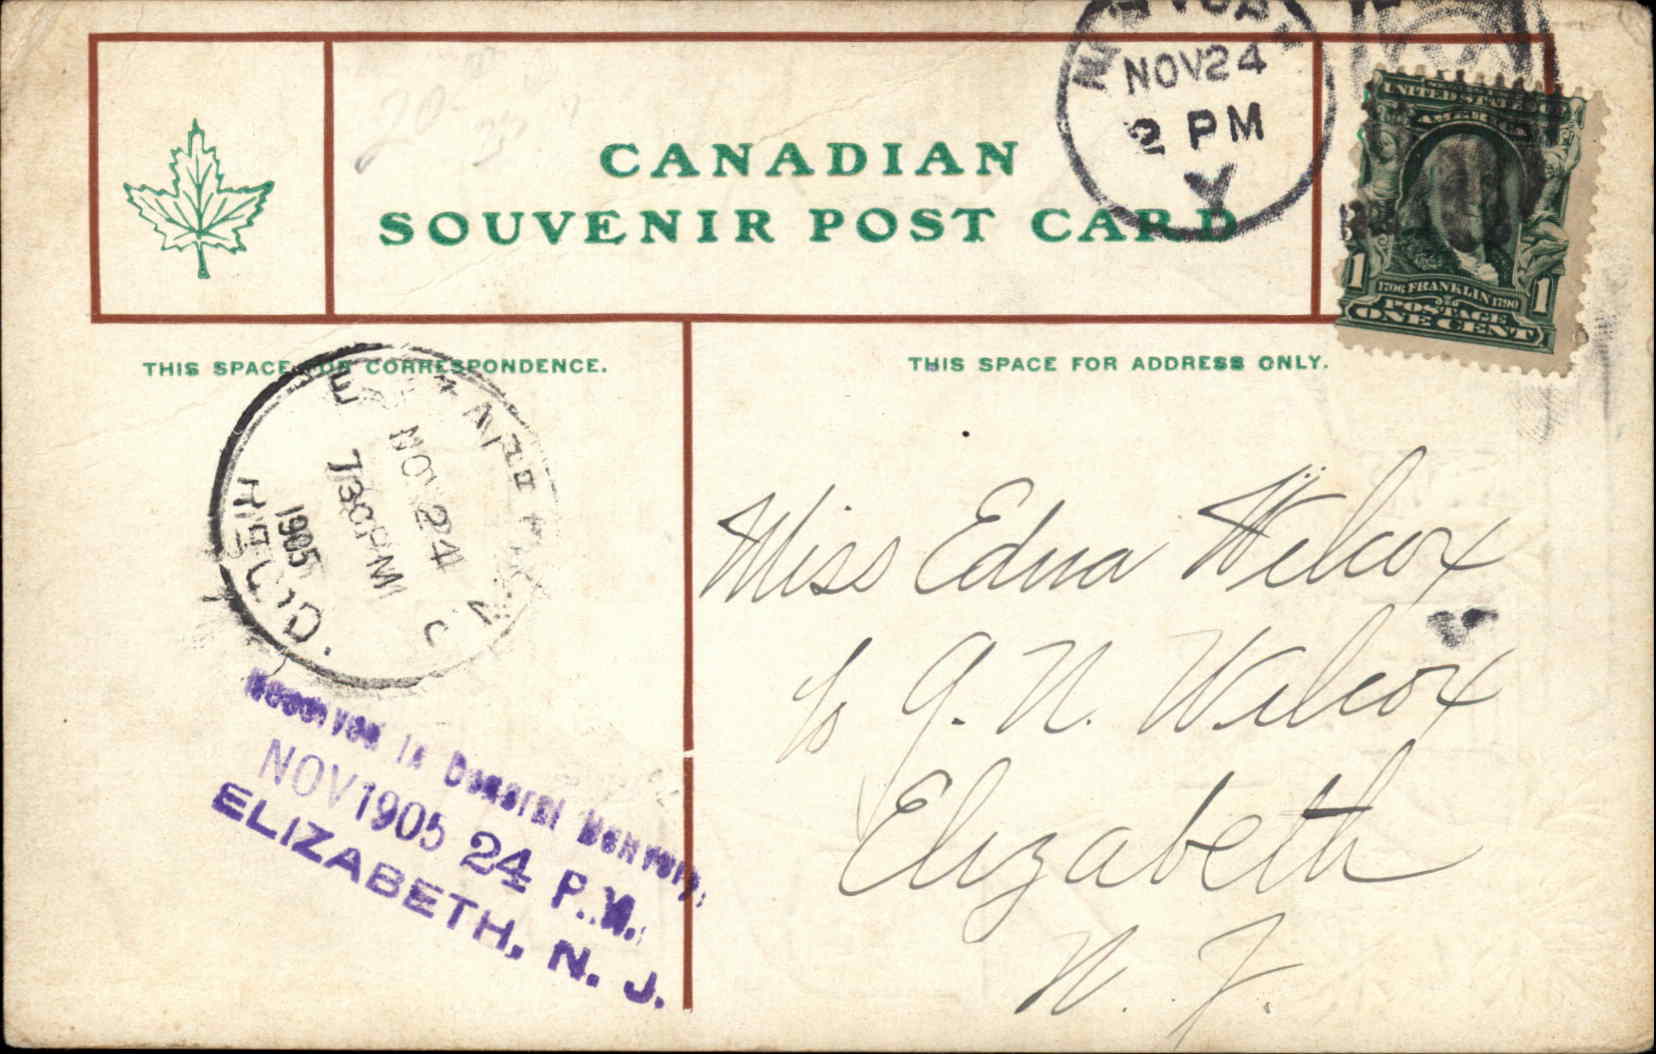 CANADIAN
SOUVENIR POST CARD
NOV 24
2 PM
UNITED STATES
AMERICA
1 1706 FRANKLIN 1790 1
POSTAGE
ONE CENT
THIS SPACE FOR CORRESPONDENCE.
THIS SPACE FOR ADDRESS ONLY.
NOV 24
730 PM
1905
N J
Miss Edna Wilcox
G. N. Wilcox
Elizabeth
N. J.
Received in General Delivery,
NOV 1905 24 P.M.
ELIZABETH, N. J.